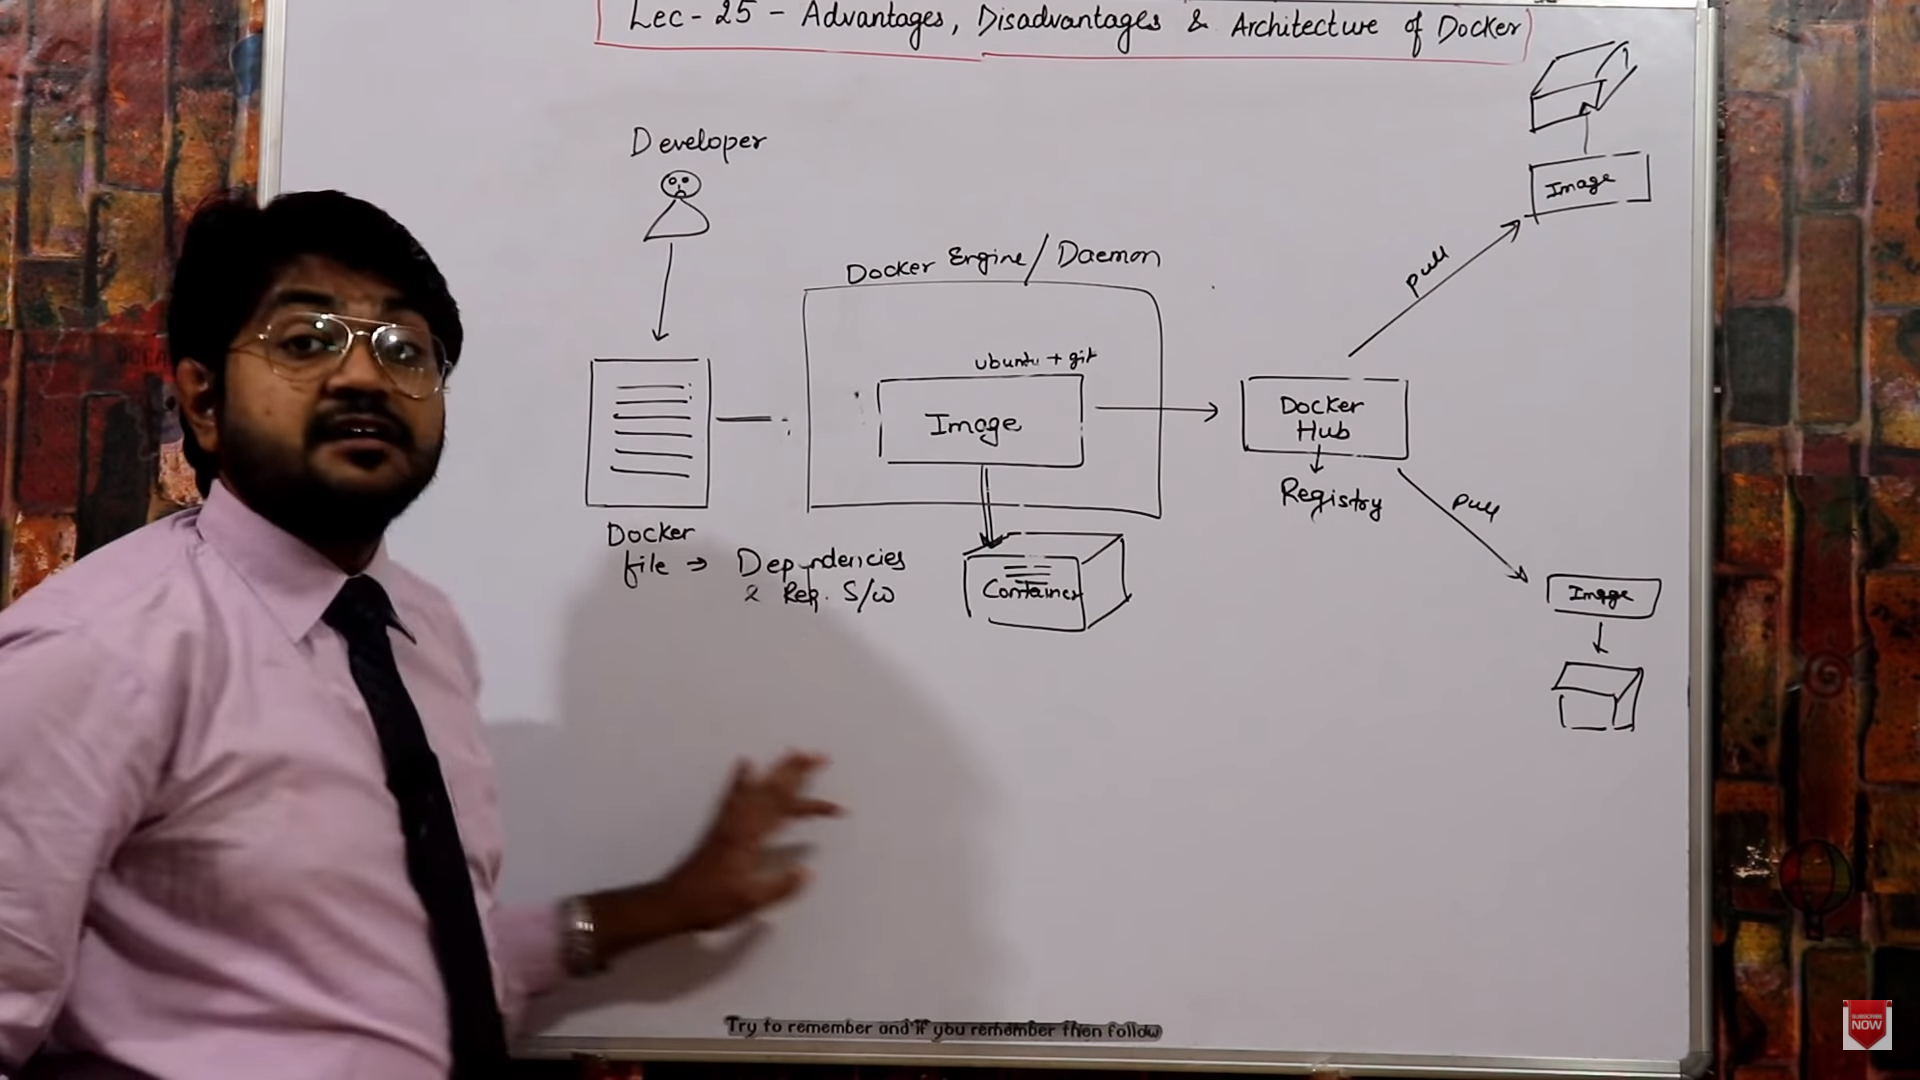 Lec - 25 - Advantages, Disadvantages & Architecture of Docker
Developer
Docker Engine / Daemon
ubuntu + git
Image
Docker
file → Dependencies
& Req. S/w
Container
Docker
Hub
Registry
pull
Image
pull
Image
Try to remember and if you remember then follow
SUBSCRIBE
NOW